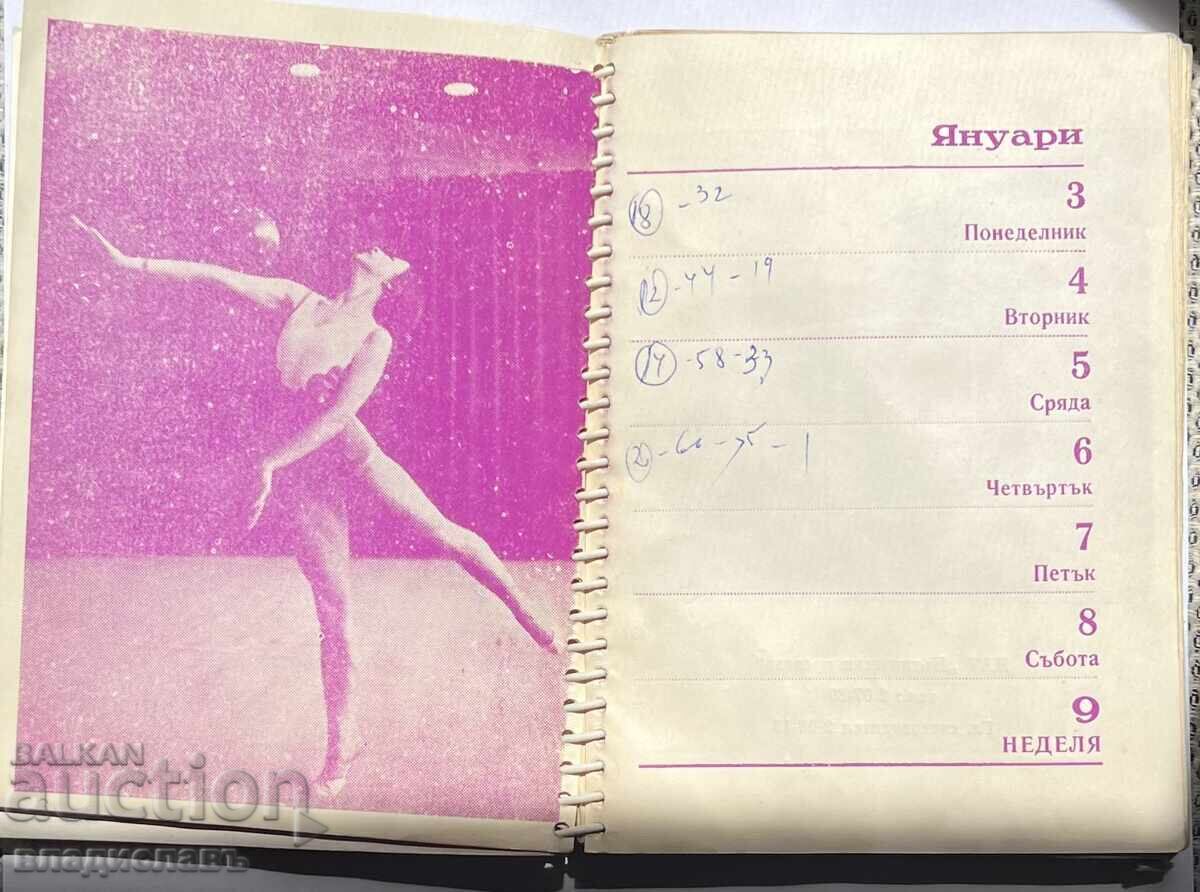 Януари
18 - 32
3
Понеделник
12 - 44 - 19
4
Вторник
14 - 58 - 33
5
Сряда
6
Четвъртък
7
Петък
8
Събота
9
НЕДЕЛЯ
BALKAN
auction
владиславъ